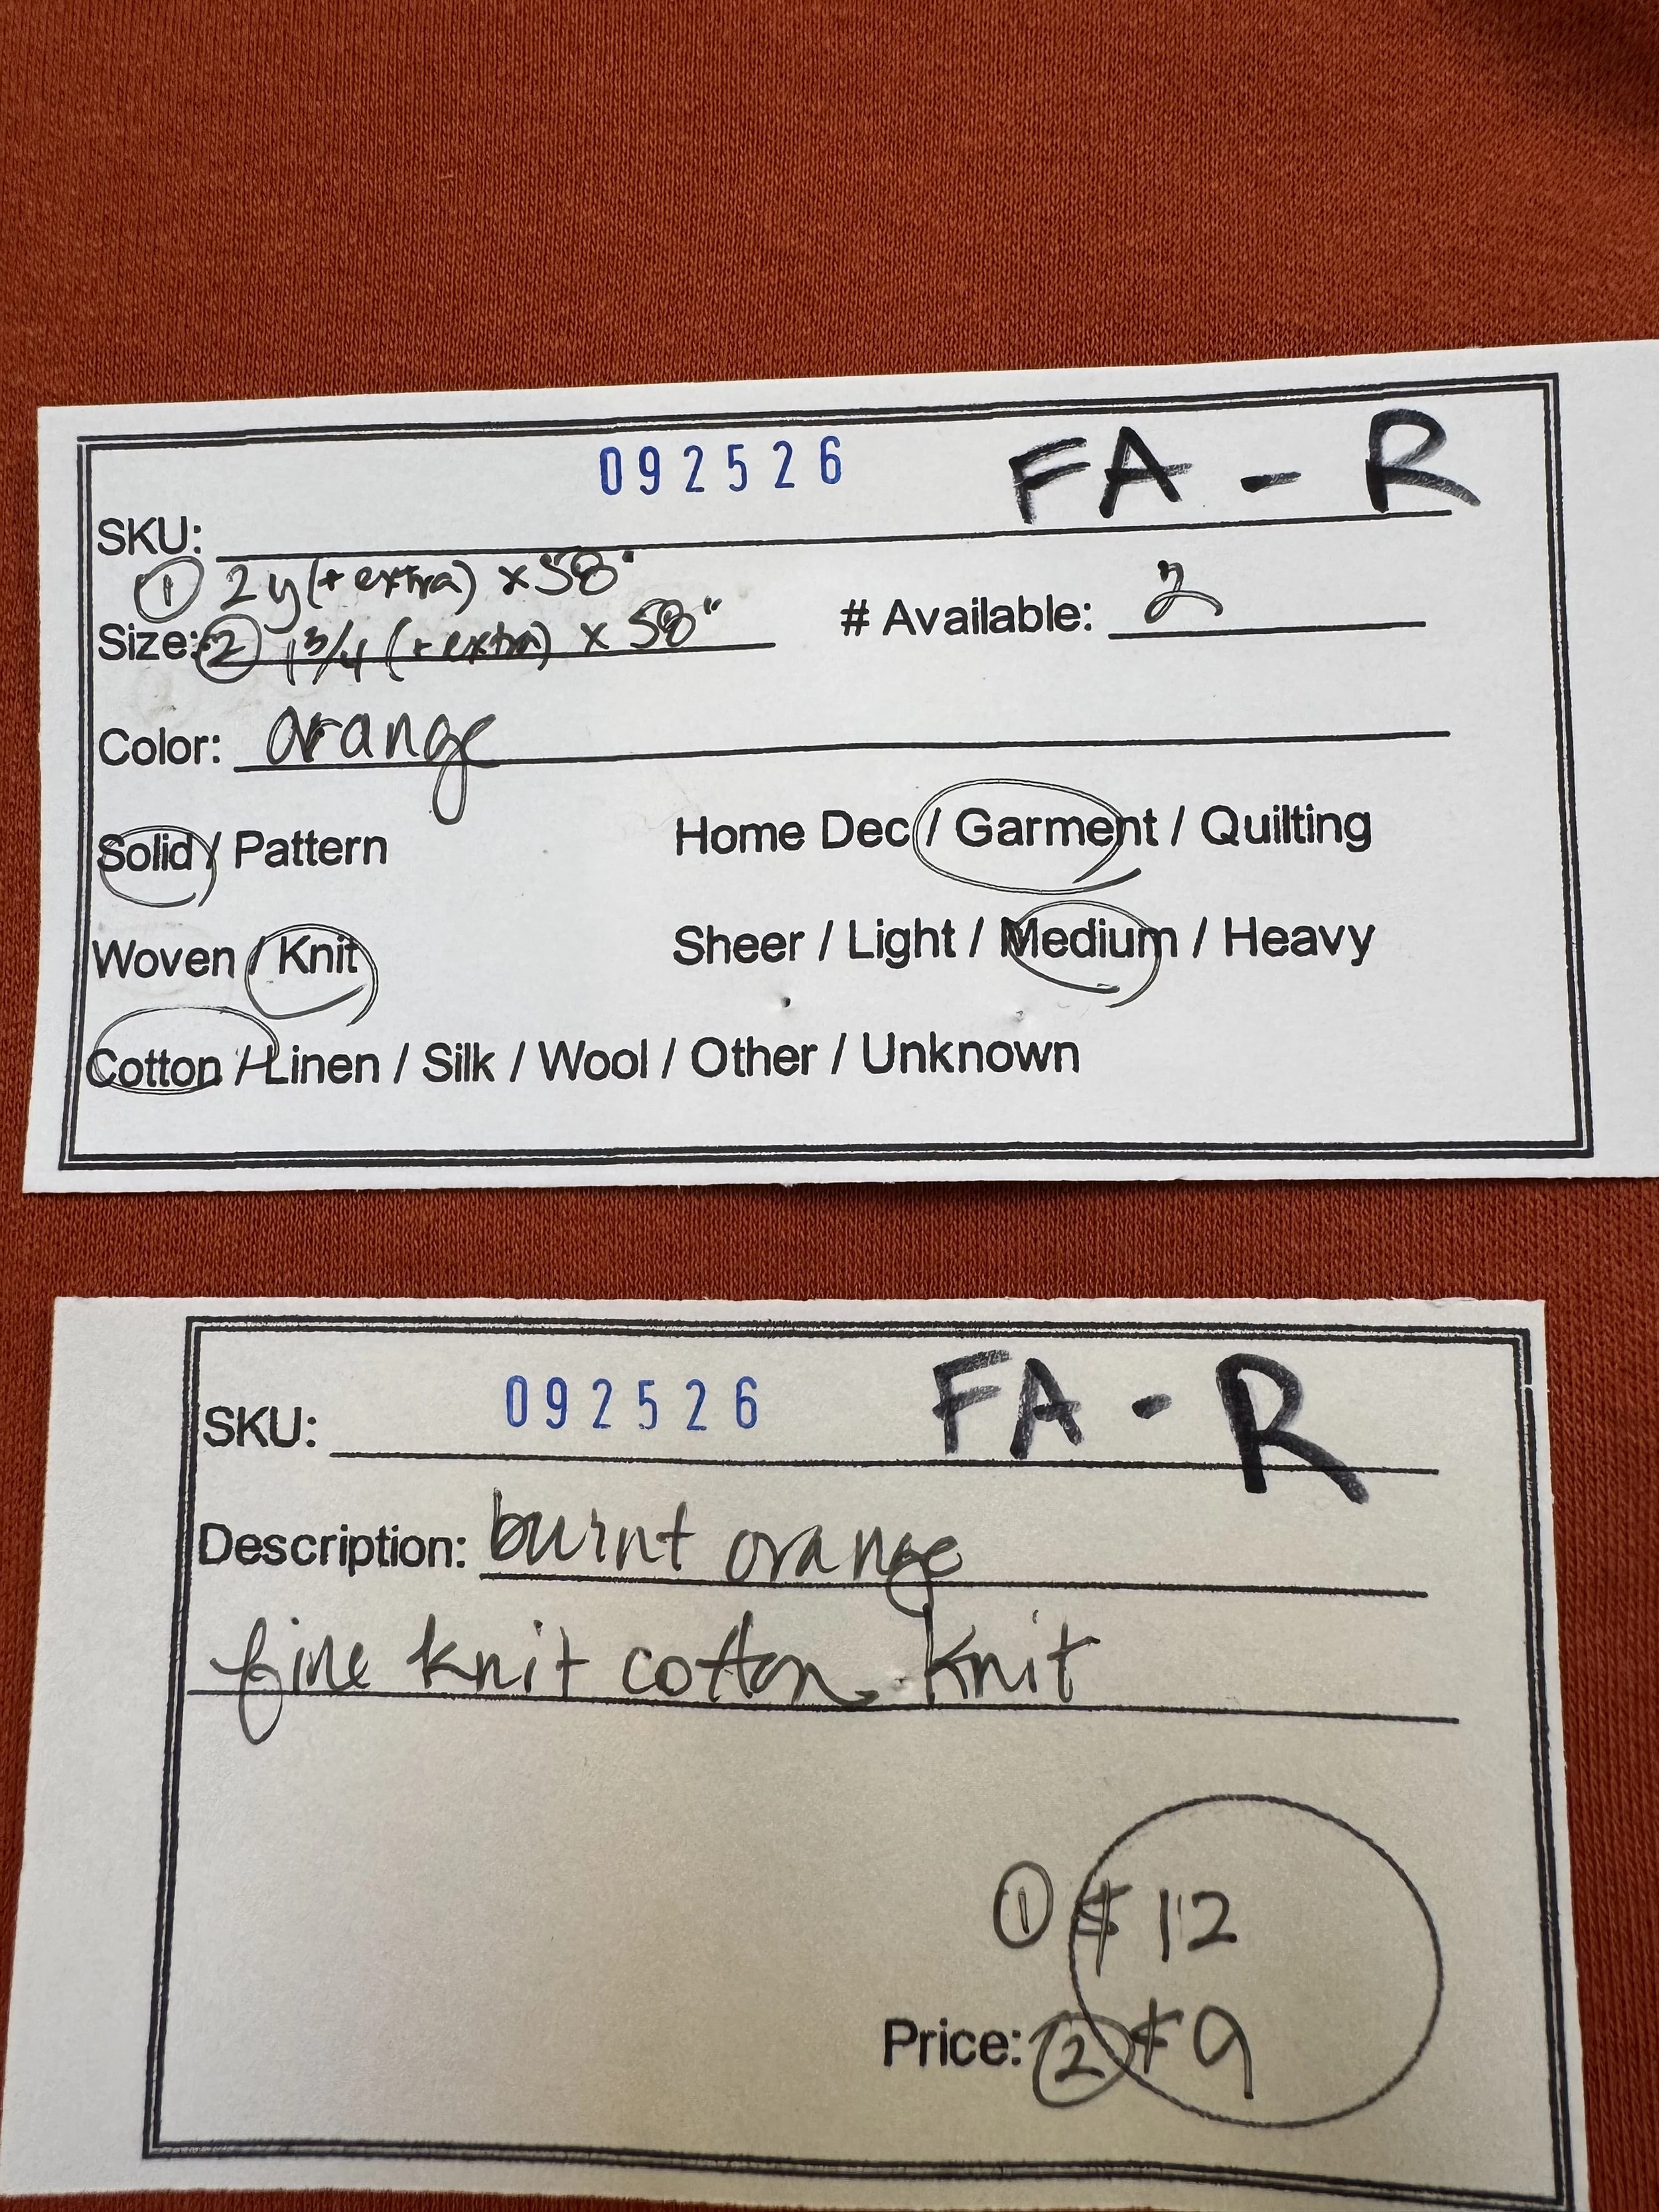 092526 FA - R
SKU:
① 2y (+ extra) x 58"
Size: ② 1 3/4 (+ extra) x 58" # Available: 2
Color: orange
Solid / Pattern Home Dec / Garment / Quilting
Woven / Knit Sheer / Light / Medium / Heavy
Cotton / Linen / Silk / Wool / Other / Unknown
SKU: 092526 FA - R
Description: burnt orange
fine knit cotton knit
① $12
Price: ② $9